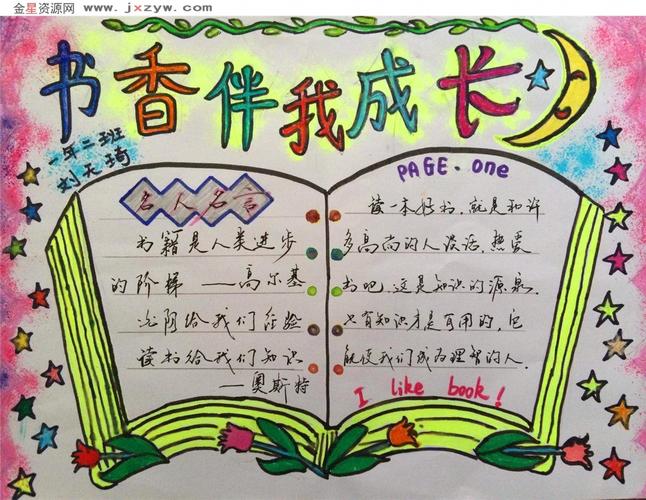 金星资源网
www.jxzyw.com
书香伴我成长
一年二班
刘天琦
名人名言
书籍是人类进步
的阶梯 ——高尔基
沧阴给我们经验
读书给我们知识
——奥斯特
PAGE.one
读一本好书,就是和许
多高尚的人谈话,热爱
书吧,这是知识的源泉.
只有知识才是有用的,它
能使我们成为理智的人.
I like book!